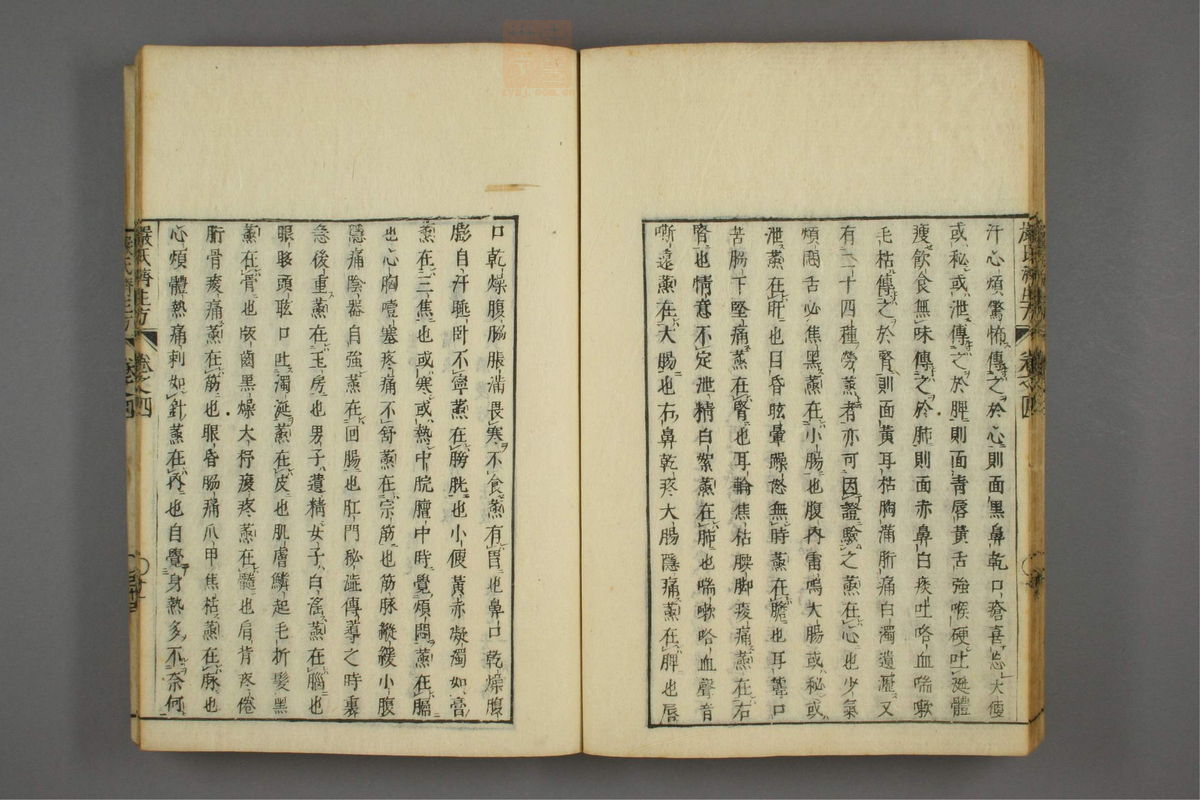 汗心煩驚怖傳之於心則面黑鼻乾口瘡喜忘大便
或秘或泄傳之於脾則面青唇黃舌強喉硬吐涎體
瘦飲食無味傳之於肺則面赤鼻白痰吐咯血喘嗽
毛枯傳之於腎則面黃耳枯胸滿胻痛白濁遺瀝又
有二十四種勞蒸者亦可因證驗之蒸在心也少氣
煩悶舌必焦黑蒸在小腸也腹內雷鳴大腸或秘或
泄蒸在肝也目昏眩暈躁怒無時蒸在膽也耳聾口
苦脇下堅痛蒸在腎也耳輪焦枯腰脚痠痛蒸在右
腎也情意不定泄精白絮蒸在肺也喘嗽咯血聲音
嘶遠蒸在大腸也右鼻乾疼大腸隱痛蒸在脾也唇
口乾燥腹脇脹滿畏寒不食蒸有胃也鼻口乾燥腹
膨自汗睡卧不寧蒸在膀胱也小便黃赤凝濁如膏
蒸在三焦也或寒或熱中脘膻中時覺煩悶蒸在膈
也心胸噎塞疼痛不舒蒸在宗筋也筋脉縱緩小腹
隱痛陰器自強蒸在回腸也肛門秘澁傳導之時裏
急後重蒸在玉房也男子遺精女子白淫蒸在腦也
眼眵頭眩口吐濁涎蒸在皮也肌膚鱗起毛折髮黑
蒸在骨也板齒黑燥大杼痠疼蒸在髓也肩背疼倦
胻骨痠痛蒸在筋也眼昏脇痛爪甲焦枯蒸在脉也
心煩體熱痛刺如針蒸在內也自覺身熱多不奈何
嚴氏濟生方 卷之四